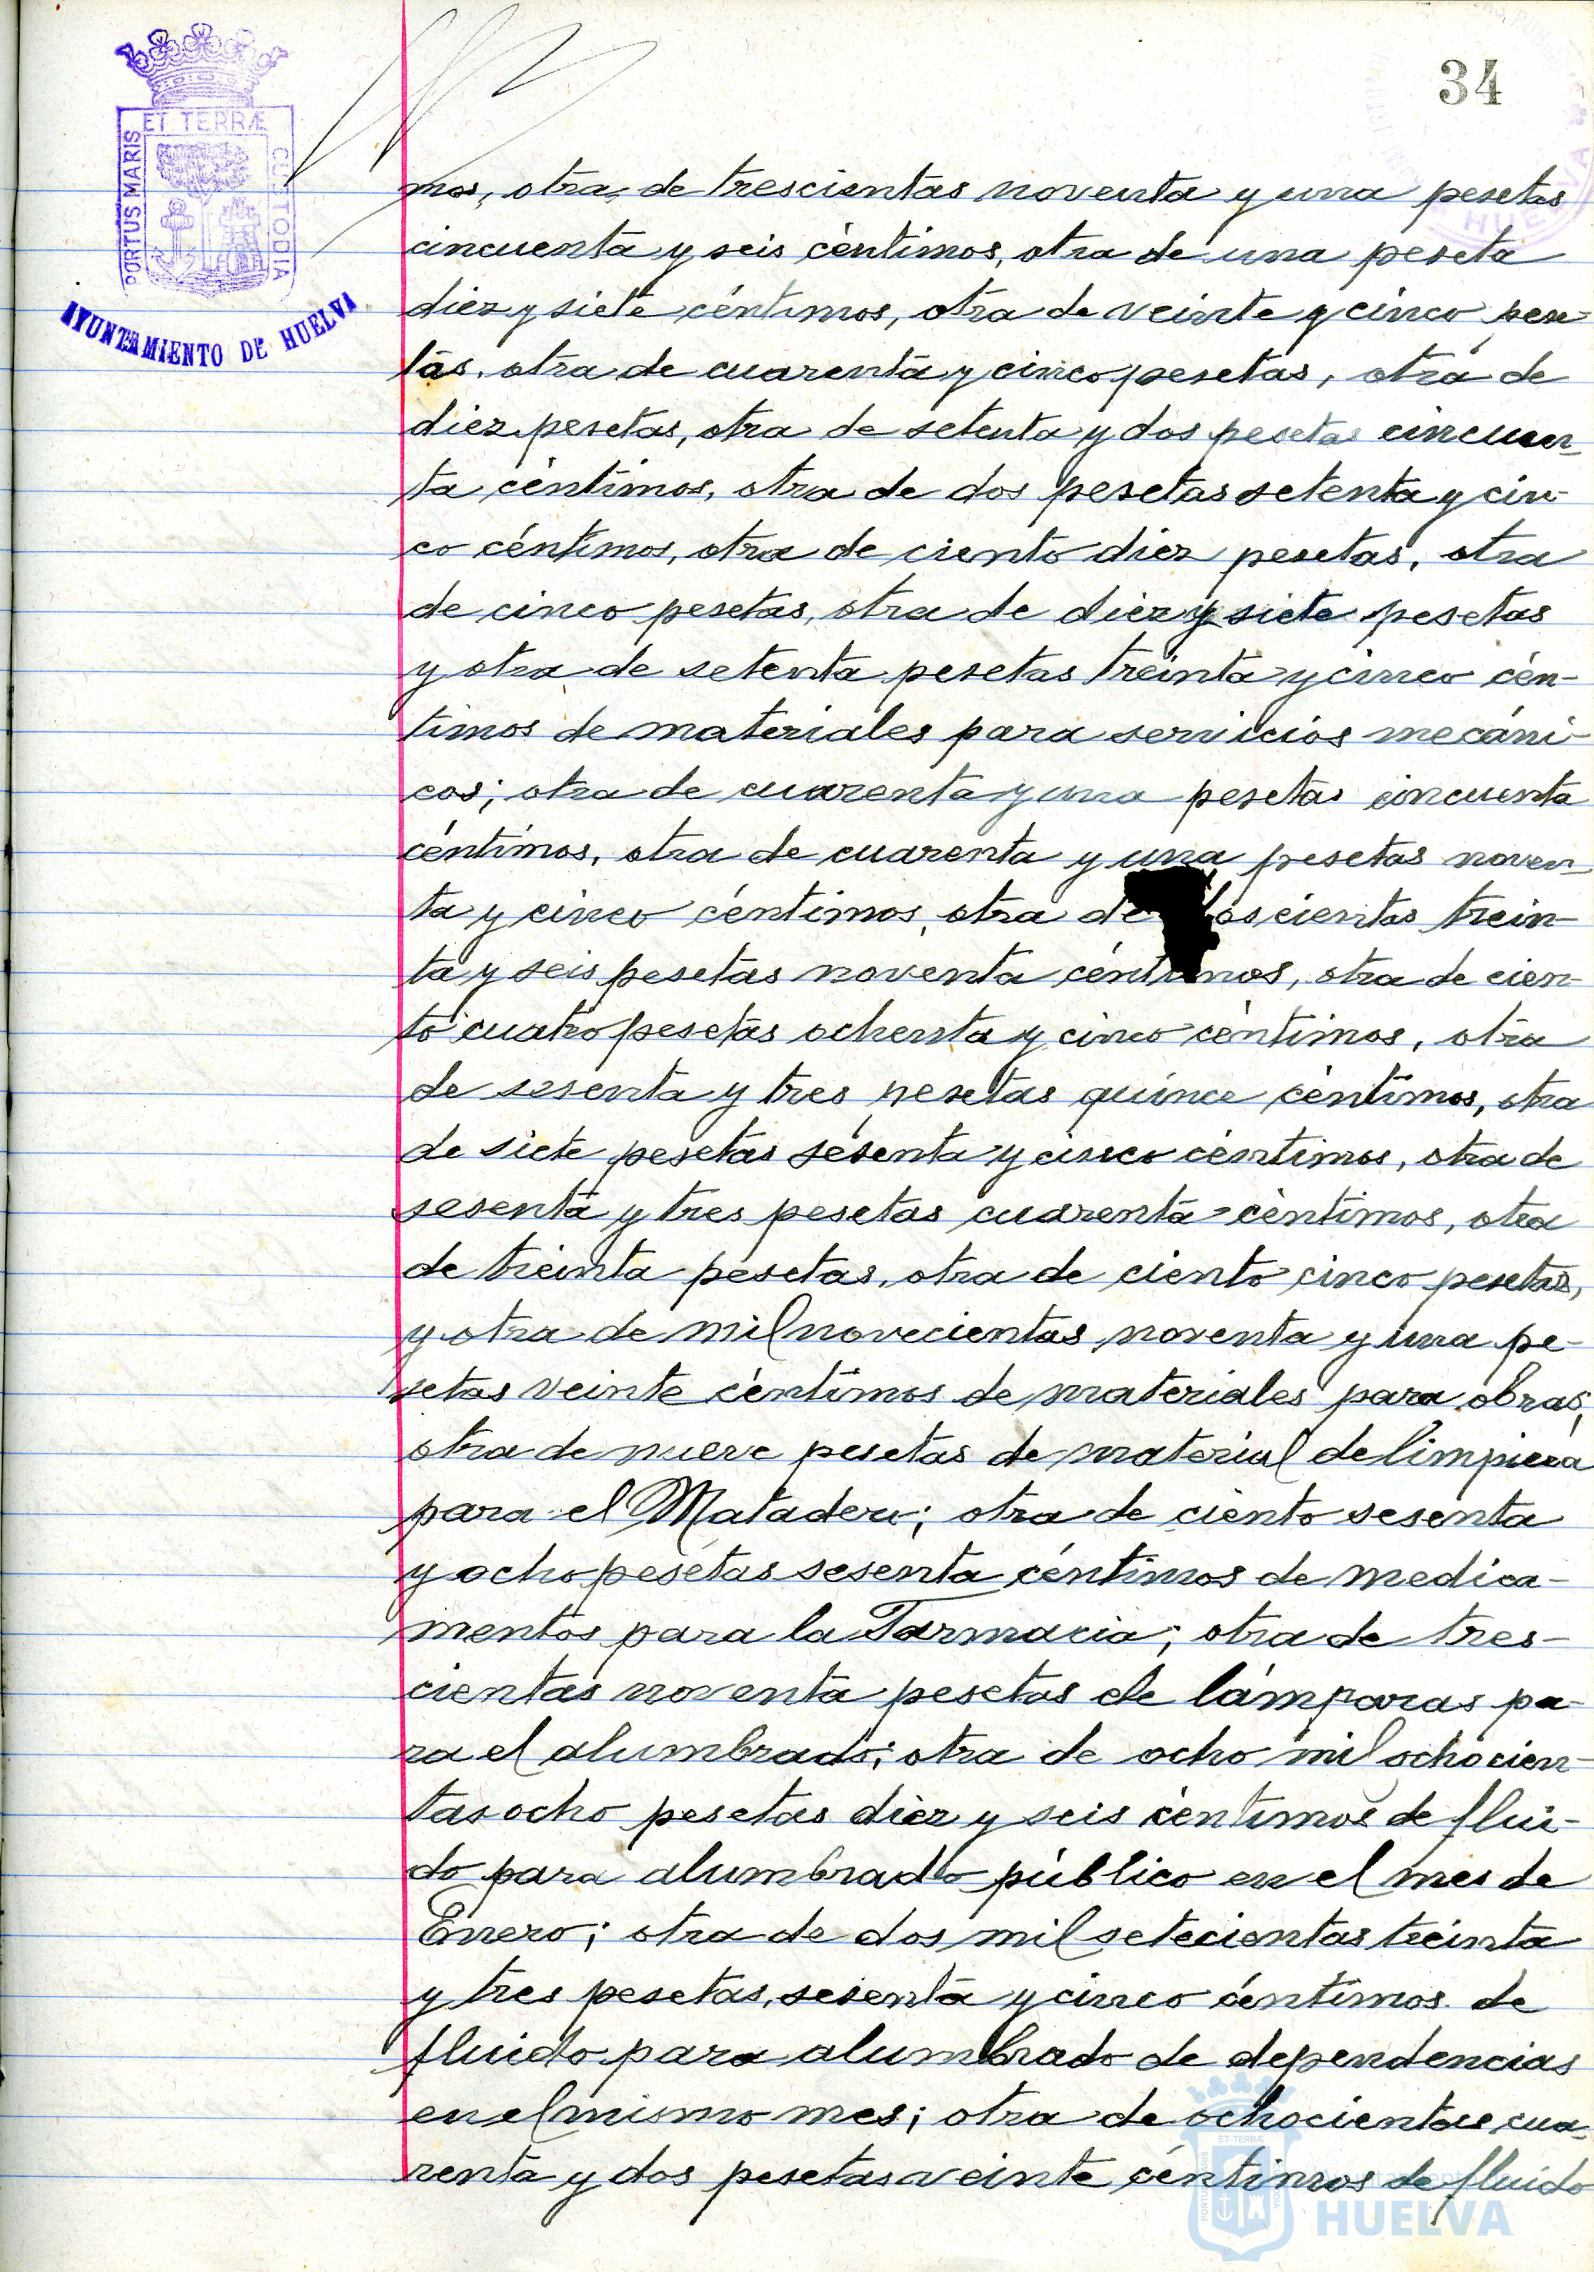 34
ET TERRÆ
PORTUS MARIS
CUSTODIA
AYUNTAMIENTO DE HUELVA
HUELVA
mos, otra de trescientas noventa y una pesetas
cincuenta y seis céntimos, otra de una peseta
diez y siete céntimos, otra de veinte y cinco pese-
tas, otra de cuarenta y cinco pesetas, otra de
diez pesetas, otra de setenta y dos pesetas cincuen-
ta céntimos, otra de dos pesetas setenta y cin-
co céntimos, otra de ciento diez pesetas, otra
de cinco pesetas, otra de diez y siete pesetas
y otra de setenta pesetas treinta y cinco cén-
timos de materiales para servicios mecáni-
cos; otra de cuarenta y una pesetas cincuenta
céntimos, otra de cuarenta y una pesetas noven-
ta y cinco céntimos, otra de doscientas trein-
ta y seis pesetas noventa céntimos, otra de cien-
to cuatro pesetas ochenta y cinco céntimos, otra
de sesenta y tres pesetas quince céntimos, otra
de siete pesetas sesenta y cinco céntimos, otra de
sesenta y tres pesetas cuarenta céntimos, otra
de treinta pesetas, otra de ciento cinco pesetas,
y otra de mil novecientas noventa y una pe-
setas veinte céntimos de materiales para obras;
otra de nueve pesetas de material de limpieza
para el Matadero; otra de ciento sesenta
y ocho pesetas sesenta céntimos de medica-
mentos para la Farmacia; otra de tres-
cientas noventa pesetas de lámparas pa-
ra el alumbrado; otra de ocho mil ochocien-
tas ocho pesetas diez y seis céntimos de flui-
do para alumbrado público en el mes de
Enero; otra de dos mil setecientas treinta
y tres pesetas, sesenta y cinco céntimos de
fluido para alumbrado de dependencias
en el mismo mes; otra de ochocientas cua-
renta y dos pesetas veinte céntimos de fluido
HUELVA